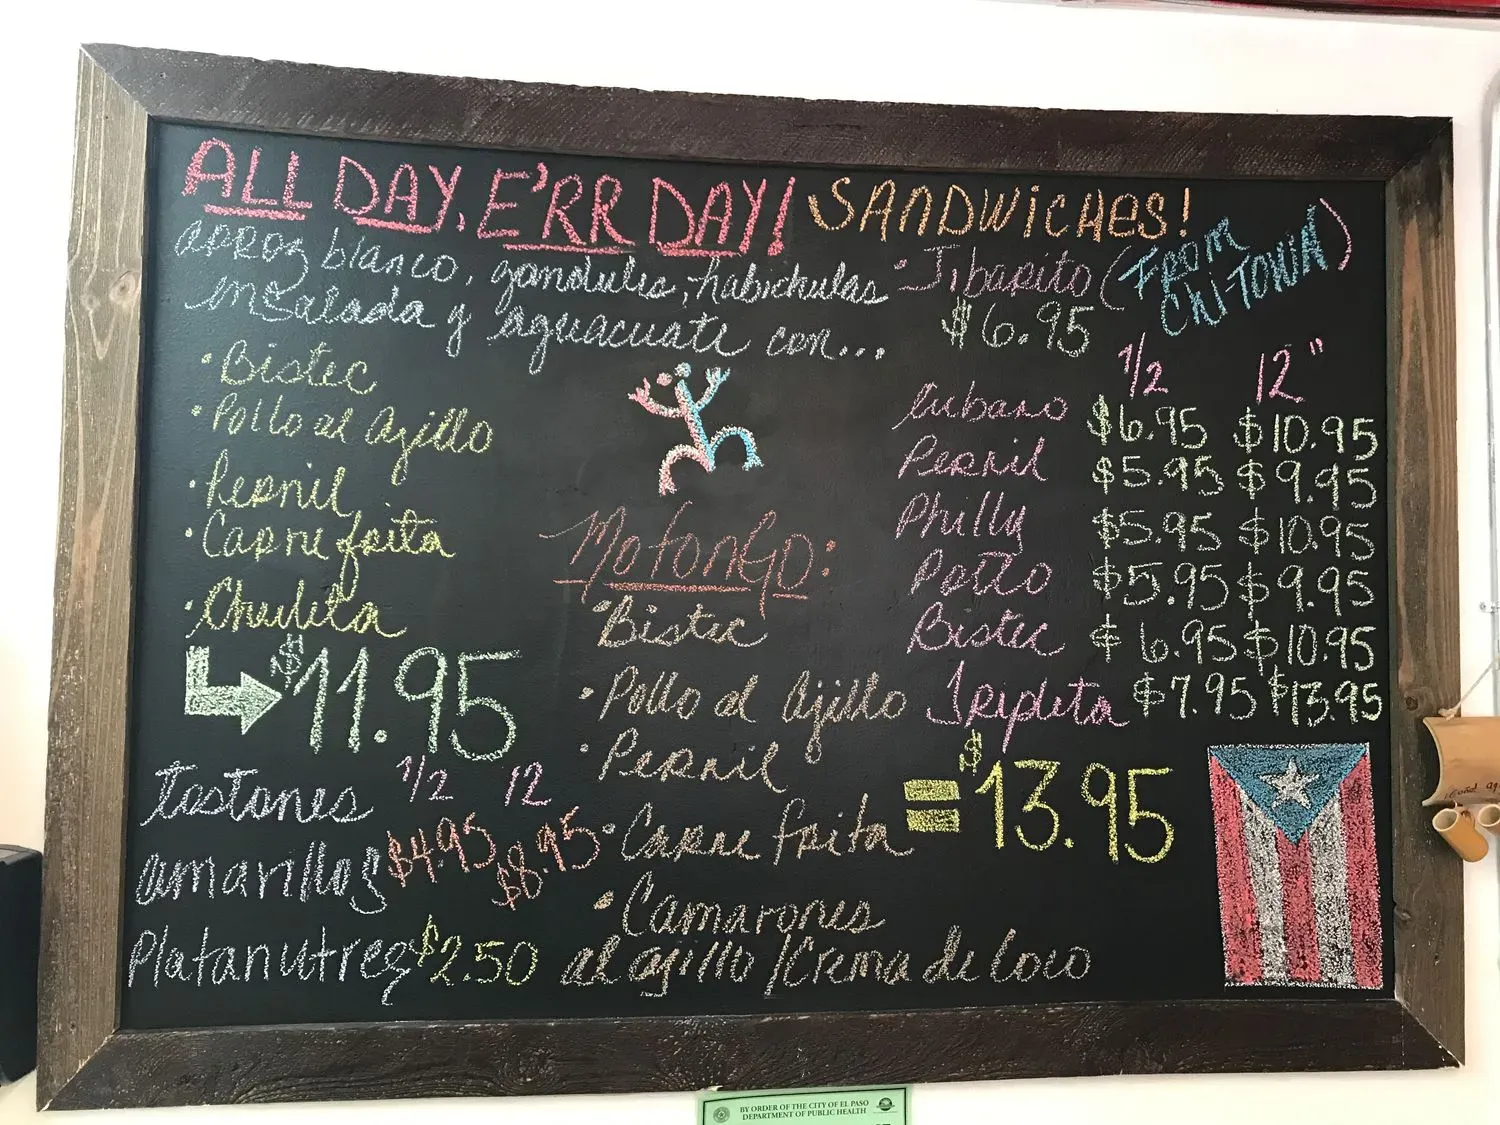 ALL DAY, E'RR DAY!
arroz blanco, gandules, habichulas
ensalada y aguacuate con...
· Bistec
· Pollo al Ajillo
· Pernil
· Carne frita
· Chuleta
$11.95
1/2 12
tostones
amarillos $4.95 $8.95
Platanutres $2.50
Mofongo:
· Bistec
· Pollo al Ajillo
· Pernil
· Carne frita
· Camarones
al ajillo / Crema de Coco
= $13.95
SANDWICHES!
· Jibarito (FROM
CHI-TOWN)
$6.95
1/2 12"
Cubano $6.95 $10.95
Pernil $5.95 $9.95
Philly $5.95 $10.95
Pollo $5.95 $9.95
Bistec $6.95 $10.95
Tripleta $7.95 $13.95
BY ORDER OF THE CITY OF EL PASO
DEPARTMENT OF PUBLIC HEALTH